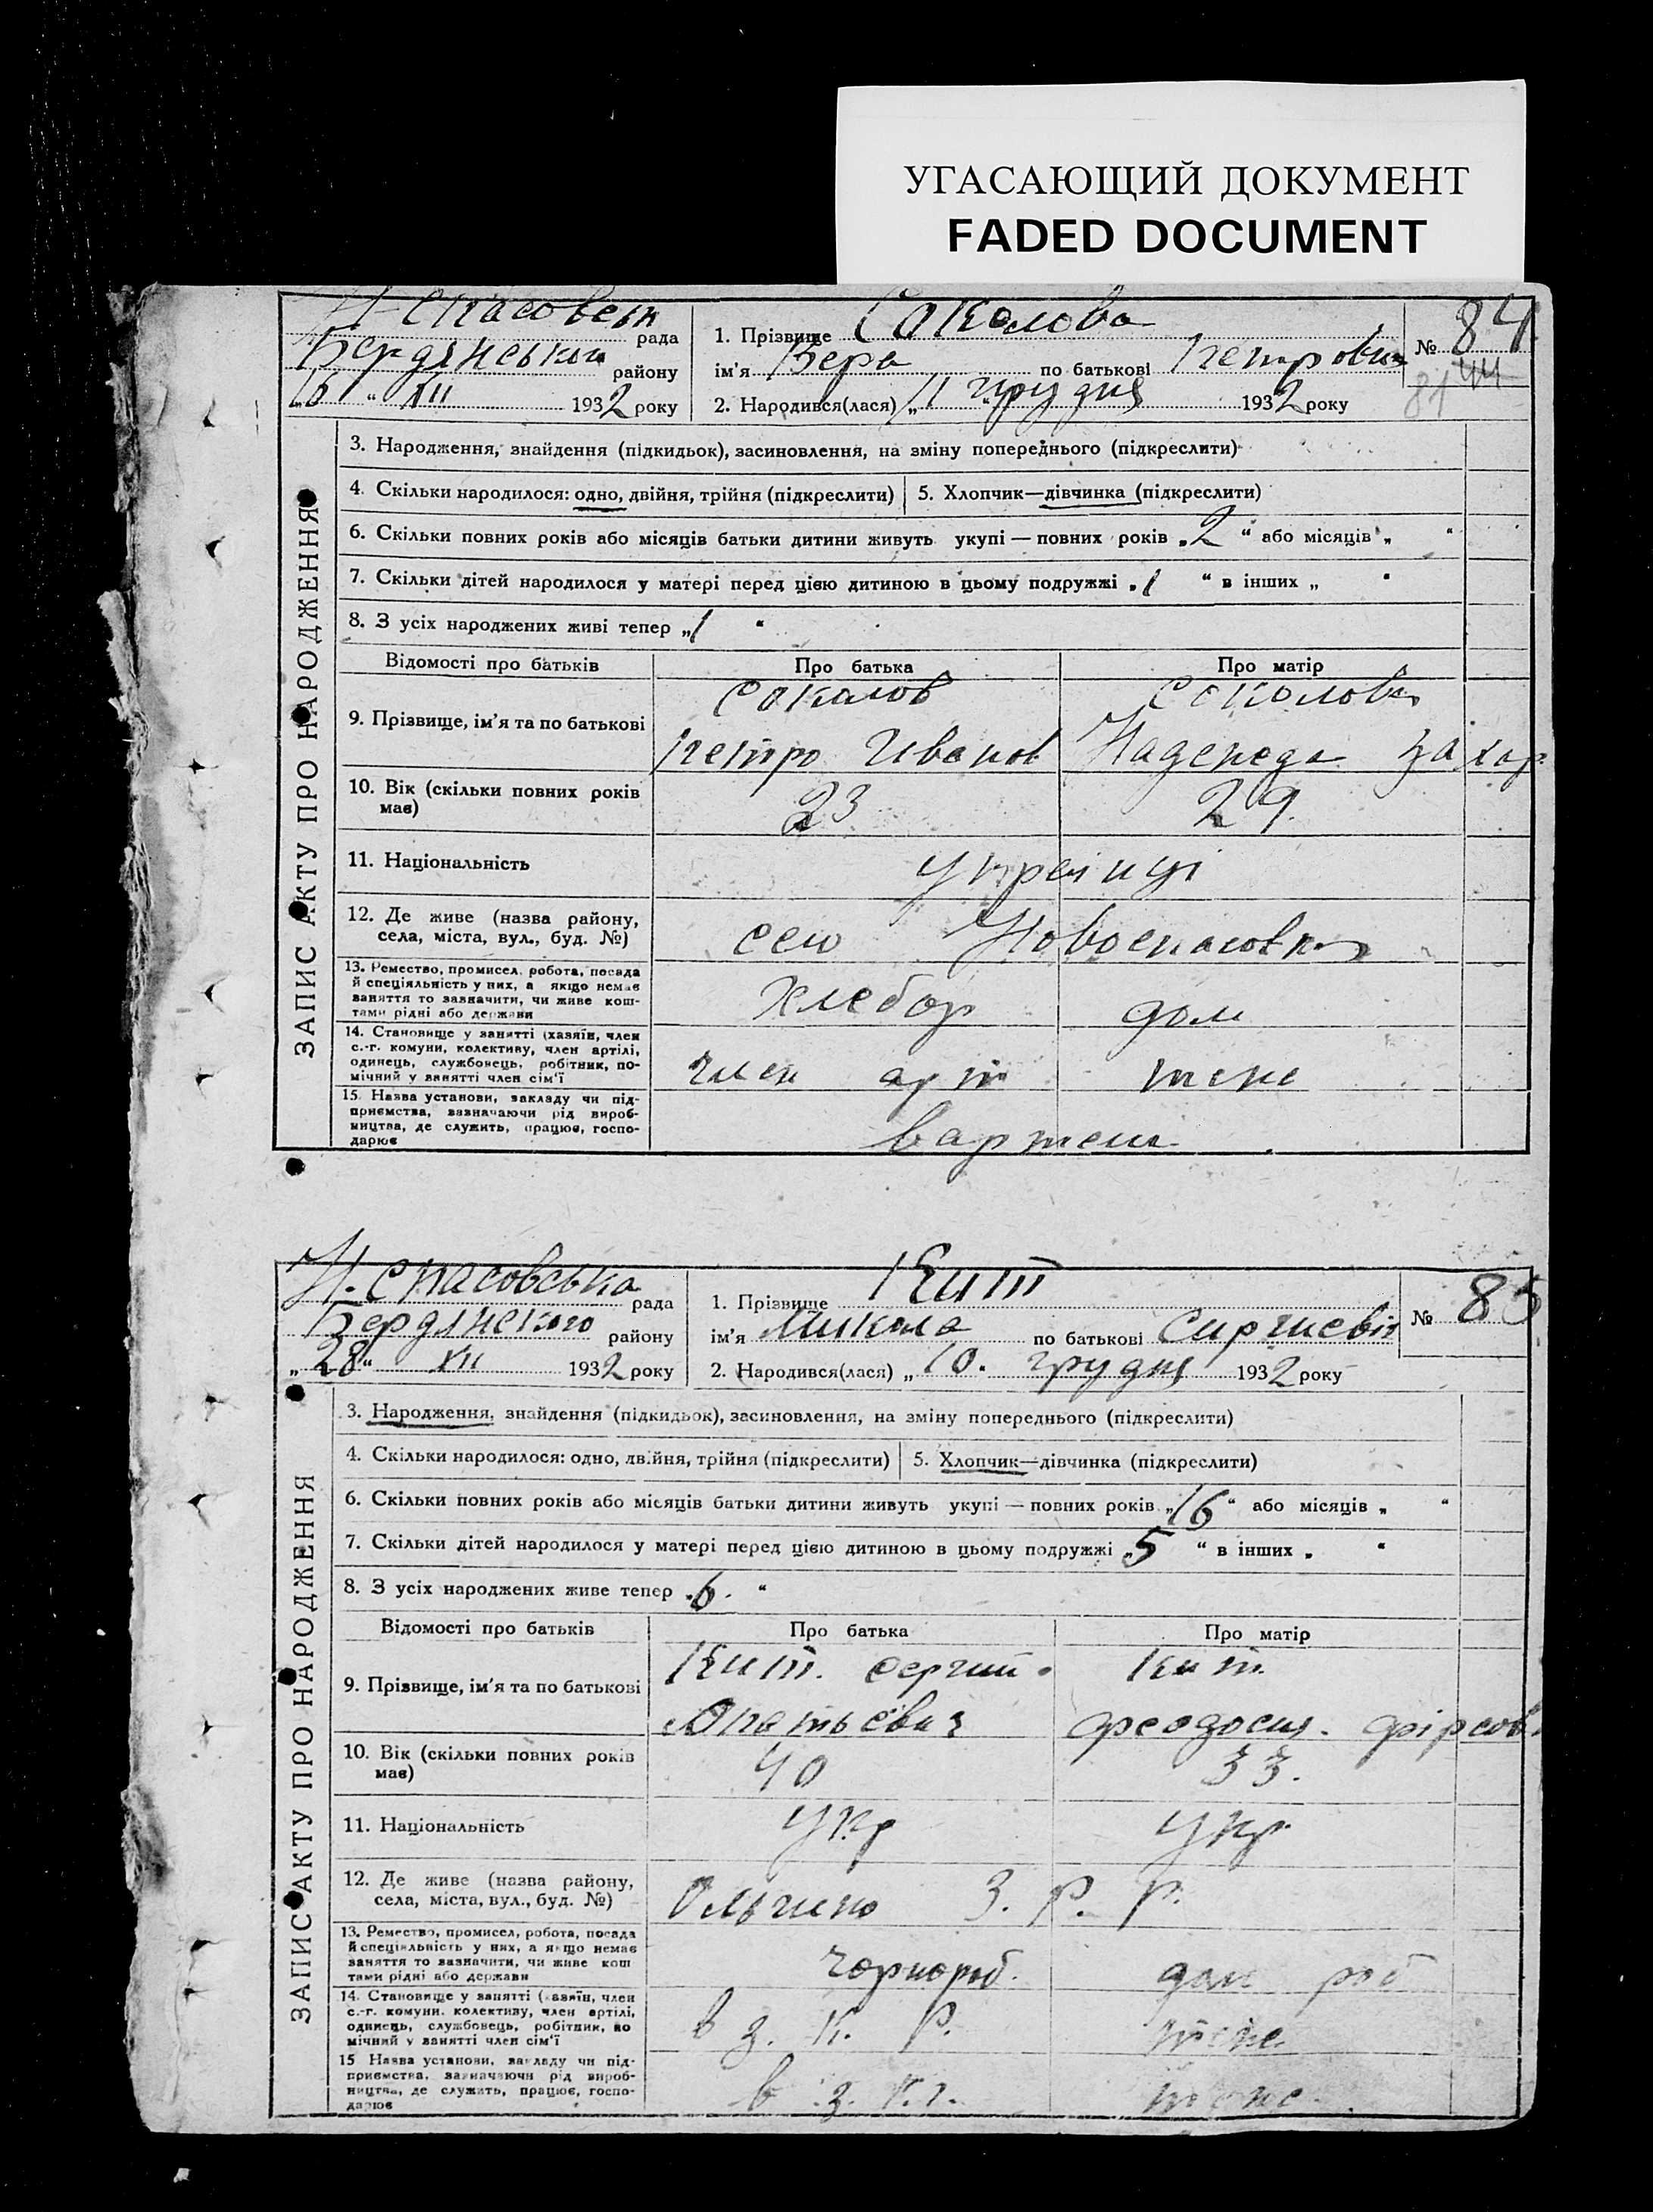 УГАСАЮЩИЙ ДОКУМЕНТ
FADED DOCUMENT
рада
району
XII 1932 року
1. Прізвище Соколова
ім'я Вера по батькові
2. Народився(лася) „11 грудня 1932 року
№ 84
81
ЗАПИС АКТУ ПРО НАРОДЖЕННЯ
3. Народження, знайдення (підкидьок), засиновлення, на зміну попереднього (підкреслити)
4. Скільки народилося: одно, двійня, трійня (підкреслити)
5. Хлопчик—дівчинка (підкреслити)
6. Скільки повних років або місяців батьки дитини живуть укупі — повних років „2“ або місяців „ “
7. Скільки дітей народилося у матері перед цією дитиною в цьому подружжі „1 “ в інших „ “
8. З усіх народжених живі тепер „1 “
Відомості про батьків
Про батька
Про матір
9. Прізвище, ім'я та по батькові
Соколов
Соколова
Петро Иванов
захар
10. Вік (скільки повних років
має)
23
29.
11. Національність
12. Де живе (назва району,
села, міста, вул., буд. №)
село Новоспасовка
13. Ремество, промисел, робота, посада
й спеціяльність у них, а якщо немає
заняття то зазначити, чи живе кош-
тами рідні або держави
Хлебор
дом
14. Становище у занятті (хазяїн, член
с.-г. комуни, колективу, член артілі,
одинець, службовець, робітник, по-
мічний у занятті член сім'ї
член арт
15. Назва установи, закладу чи під-
приємства, зазначаючи рід вироб-
ництва, де служить, працює, госпо-
дарює
в артели
Н. Спасовська рада
Бердянского району
„28“ XII 1932 року
1. Прізвище Кит
ім'я Микола по батькові
2. Народився(лася) „10. грудня 1932 року
№ 85
ЗАПИС АКТУ ПРО НАРОДЖЕННЯ
3. Народження, знайдення (підкидьок), засиновлення, на зміну попереднього (підкреслити)
4. Скільки народилося: одно, двійня, трійня (підкреслити)
5. Хлопчик—дівчинка (підкреслити)
6. Скільки повних років або місяців батьки дитини живуть укупі — повних років „16“ або місяців „ “
7. Скільки дітей народилося у матері перед цією дитиною в цьому подружжі „5 “ в інших „ “
8. З усіх народжених живе тепер „6. “
Відомості про батьків
Про батька
Про матір
9. Прізвище, ім'я та по батькові
Кит. Сергий
Кит
Феодосия.
10. Вік (скільки повних років
має)
40
33.
11. Національність
Укр
Укр.
12. Де живе (назва району,
села, міста, вул., буд. №)
Ольгино З. Р. Р.
13. Ремество, промисел, робота, посада
й спеціяльність у них, а якщо немає
заняття то зазначити, чи живе кош
тами рідні або держави
Чорнороб.
дом роб
14. Становище у занятті (хазяїн, член
с.-г. комуни, колективу, член артілі,
одинець, службовець, робітник, по
мічний у занятті член сім'ї
15 Назва установи, закладу чи під-
приємства, зазначаючи рід вироб-
ництва, де служить, працює, госпо-
дарює